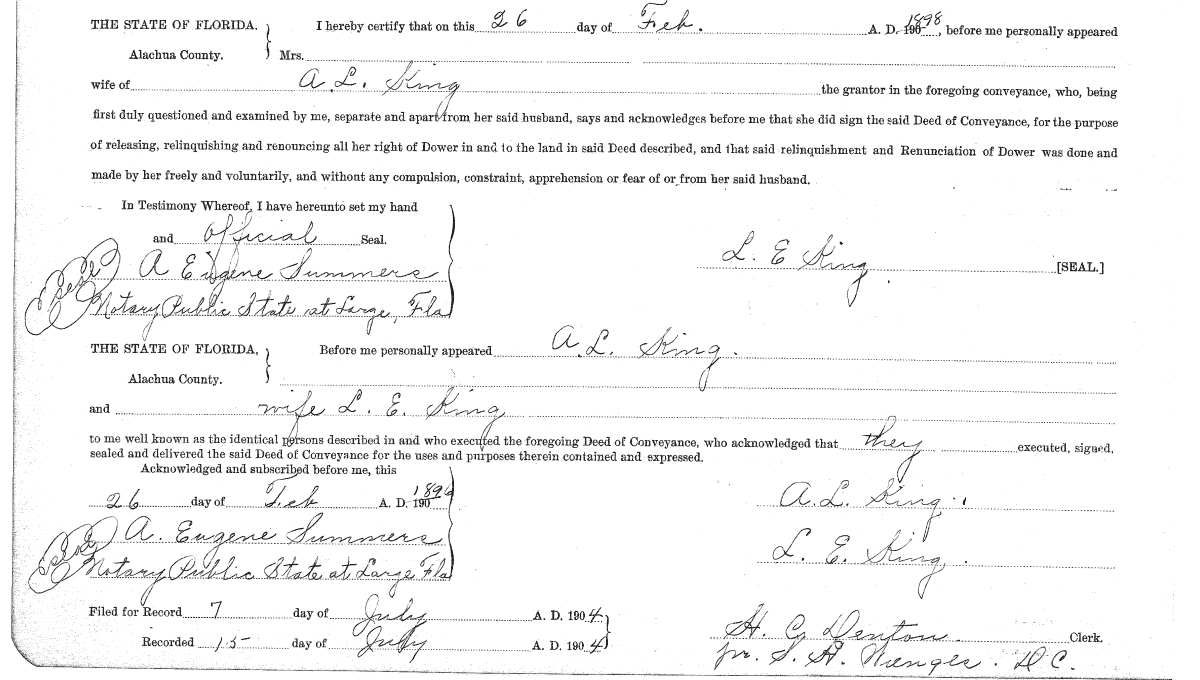 THE STATE OF FLORIDA. } I hereby certify that on this 26 day of Feb. A. D. 190 1898, before me personally appeared
Alachua County. } Mrs.
wife of A. L. King the grantor in the foregoing conveyance, who, being
first duly questioned and examined by me, separate and apart from her said husband, says and acknowledges before me that she did sign the said Deed of Conveyance, for the purpose
of releasing, relinquishing and renouncing all her right of Dower in and to the land in said Deed described, and that said relinquishment and Renunciation of Dower was done and
made by her freely and voluntarily, and without any compulsion, constraint, apprehension or fear of or from her said husband.
In Testimony Whereof, I have hereunto set my hand
and official Seal.
A Eugene Summers
L. E King [SEAL.]
Notary Public State at Large, Fla
THE STATE OF FLORIDA, } Before me personally appeared A. L. King.
Alachua County. }
and wife L. E. King
to me well known as the identical persons described in and who executed the foregoing Deed of Conveyance, who acknowledged that they executed, signed,
sealed and delivered the said Deed of Conveyance for the uses and purposes therein contained and expressed.
Acknowledged and subscribed before me, this
26 day of Feb A. D. 190
A. L. King.
A. Eugene Summers
L. E. King.
Notary Public State at Large Fla
Filed for Record 7 day of July A. D. 1904
H. C. Denton Clerk.
Recorded 15 day of July A. D. 1904
pr. S. H. Wienges. D C.